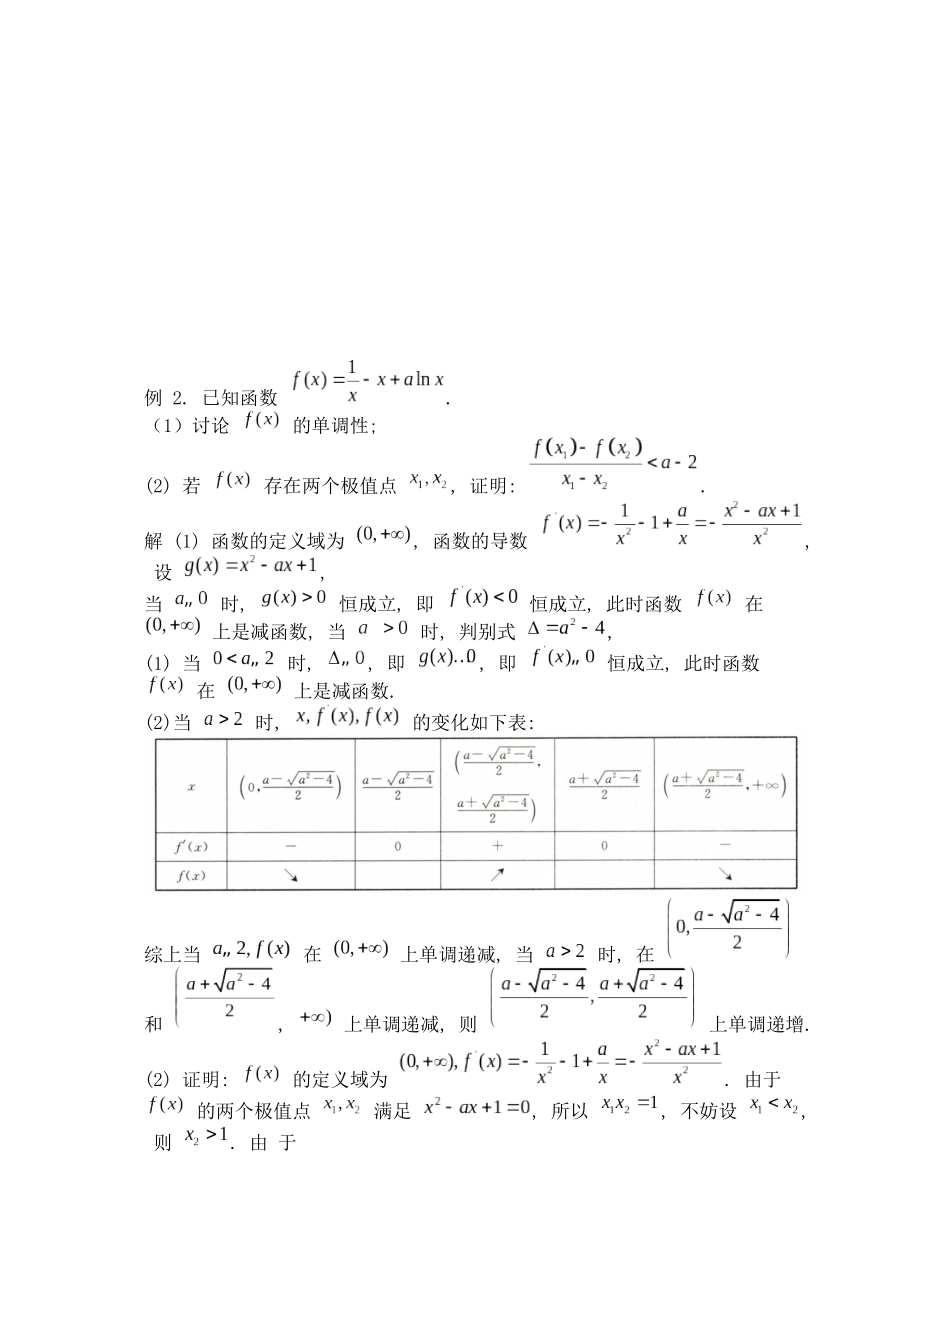 例 2. 已知函数 f(x)=1/x−x+aln x .
（1）讨论 f(x) 的单调性;
(2) 若 f(x) 存在两个极值点 x₁, x₂, 证明: (f(x₁)−f(x₂))/(x₁−x₂)<a−2 .
解 (1) 函数的定义域为 (0,+∞), 函数的导数 f′(x)=−1/x²−1+a/x=−(x²−ax+1)/x²,
设 g(x)=x²−ax+1,
当 a,, 0 时, g(x)>0 恒成立, 即 f′(x)<0 恒成立, 此时函数 f(x) 在
(0,+∞) 上是减函数, 当 a >0 时, 判别式 Δ=a²−4,
(1) 当 0<a,, 2 时, Δ,, 0, 即 g(x)…0, 即 f′(x),, 0 恒成立, 此时函数
f(x) 在 (0,+∞) 上是减函数.
(2)当 a>2 时, x, f′(x), f(x) 的变化如下表:
x (0,(a−√(a²−4))/2) (a−√(a²−4))/2 ((a−√(a²−4))/2,(a+√(a²−4))/2) (a+√(a²−4))/2 ((a+√(a²−4))/2,+∞)
f′(x) − 0 + 0 −
f(x) ↘ ↗ ↘
综上当 a,, 2, f(x) 在 (0,+∞) 上单调递减, 当 a>2 时, 在 (0,(a−√(a²−4))/2)
和 ((a+√(a²−4))/2 , +∞) 上单调递减, 则 ((a−√(a²−4))/2,(a+√(a²−4))/2) 上单调递增.
(2) 证明: f(x) 的定义域为 (0,+∞), f′(x)=−1/x²−1+a/x=−(x²−ax+1)/x² . 由于
f(x) 的两个极值点 x₁, x₂ 满足 x²−ax+1=0, 所以 x₁x₂=1, 不妨设 x₁<x₂,
则 x₂>1. 由 于